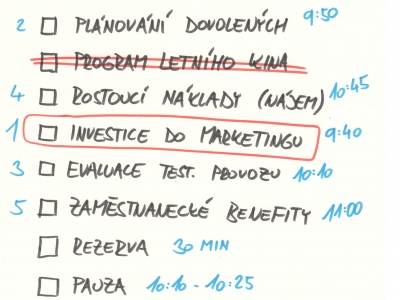 2 PLÁNOVÁNÍ DOVOLENÝCH 9:50
PROGRAM LETNÍHO KINA
4 ROSTOUCÍ NÁKLADY (NÁJEM) 10:45
1 INVESTICE DO MARKETINGU 9:40
3 EVALUACE TEST. PROVOZU 10:10
5 ZAMĚSTNANECKÉ BENEFITY 11:00
REZERVA 30 MIN
PAUZA 10:10 - 10:25